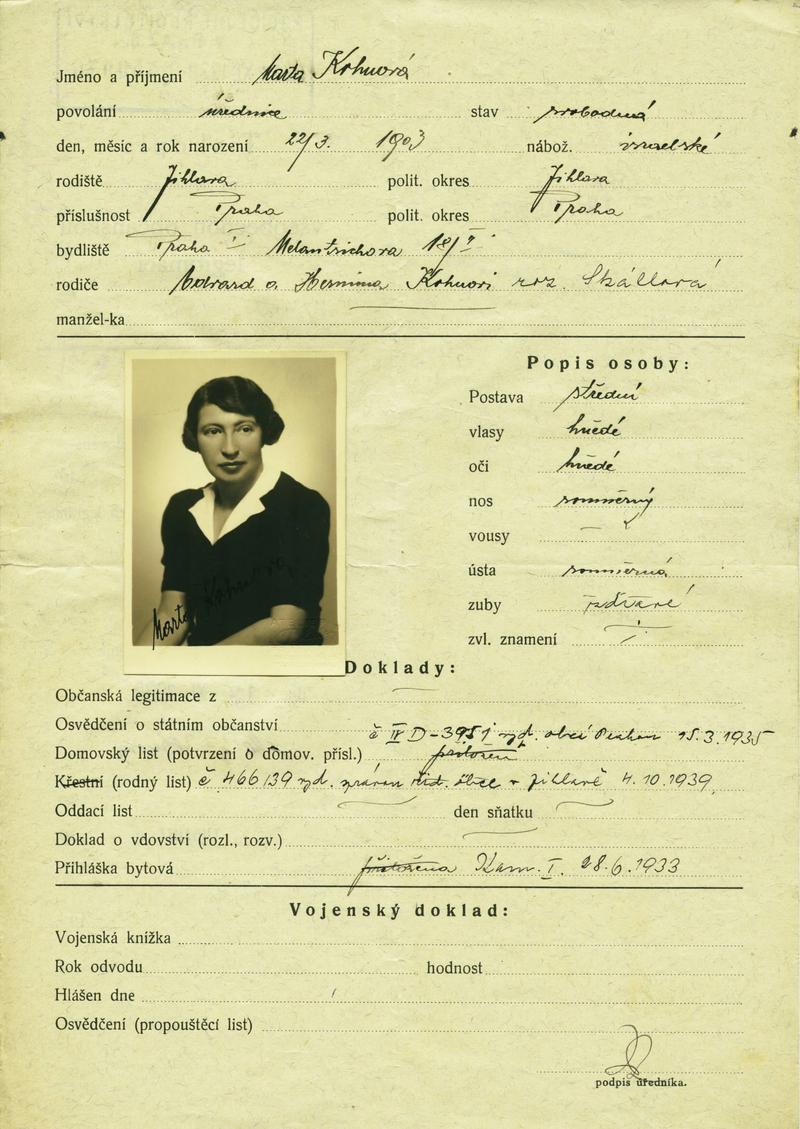 Jméno a příjmení Marta Kohnová
povolání úřednice stav svobodná
den, měsíc a rok narození 22/3. 1903 nábož. israelské
rodiště Jihlava polit. okres Jihlava
příslušnost Praha polit. okres Praha
bydliště Praha I Melantrichova 18/I
rodiče Eduard a Hermina Kohnovi roz. Skállová
manžel-ka
Popis osoby:
Postava střední
vlasy hnědé
oči hnědé
nos souměrný
vousy —
ústa souměrná
zuby zdravé
zvl. znamení
Marta Kohnová
Doklady:
Občanská legitimace z —
Osvědčení o státním občanství
č IV D-3951 vyd. obcí 15.3.1935
Domovský list (potvrzení o domov. přísl.)
Křestní (rodný list) č 466/39 vyd. žid. obce v Jihlavě 4.10.1939
Oddací list — den sňatku —
Doklad o vdovství (rozl., rozv.) —
Přihláška bytová přiložena Kom. I. 28.6.1933
Vojenský doklad:
Vojenská knížka
Rok odvodu hodnost
Hlášen dne
Osvědčení (propouštěcí list)
podpis úředníka.